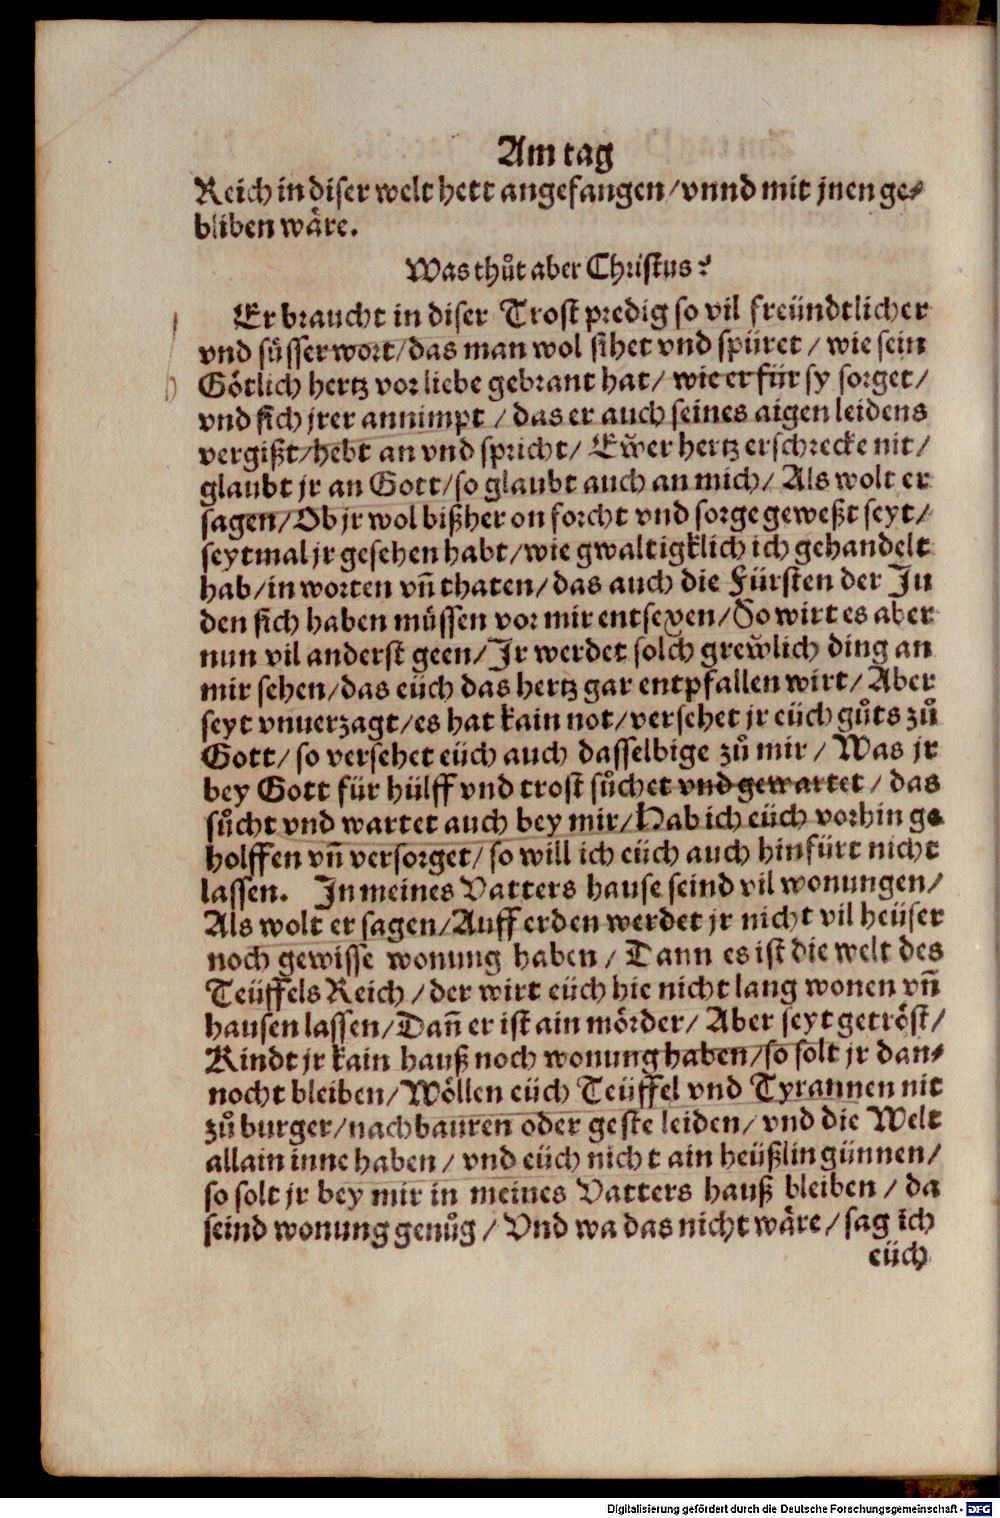 Am tag
Reich in diser welt hett angefangen/ vnnd mit jnen ge⸗
bliben wåre.
Was thůt aber Christus?
Er braucht in diser Trost predig so vil freündtlicher
vnd süsser wort/ das man wol sihet vnd spüret/ wie sein
Götlich hertz vor liebe gebrant hat/ wie er für sy sorget/
vnd sich jrer annimpt/ das er auch seines aigen leidens
vergißt/ hebt an vnd spricht/ Ewer hertz erschrecke nit/
glaubt jr an Gott/ so glaubt auch an mich/ Als wolt er
sagen/ Ob jr wol bißher on forcht vnd sorge geweßt seyt/
seytmal jr gesehen habt/ wie gwaltigklich ich gehandelt
hab/ in worten vñ thaten/ das auch die Fürsten der Ju
den sich haben müssen vor mir entseyen/ So wirt es aber
nun vil anderst geen/ Jr werdet solch grewlich ding an
mir sehen/ das eüch das hertz gar entpfallen wirt/ Aber
seyt vnuerzagt/ es hat kain not/ versehet jr eüch gůts zů
Gott/ so versehet eüch auch dasselbige zů mir/ Was jr
bey Gott für hülff vnd trost sůchet vnd gewartet/ das
sůcht vnd wartet auch bey mir/ Hab ich eüch vorhin ge
holffen vñ versorget/ so will ich eüch auch hinfürt nicht
lassen. Jn meines Vatters hause seind vil wonungen/
Als wolt er sagen/ Auff erden werdet jr nicht vil heüser
noch gewisse wonung haben/ Dann es ist die welt des
Teüffels Reich/ der wirt eüch hie nicht lang wonen vñ
hausen lassen/ Dañ er ist ain mörder/ Aber seyt getröst/
Kindt jr kain hauß noch wonung haben/ so solt jr dan⸗
nocht bleiben/ Wöllen eüch Teüffel vnd Tyrannen nit
zů burger/ nachbauren oder geste leiden/ vnd die Welt
allain inne haben/ vnd eüch nicht ain heüßlin günnen/
so solt jr bey mir in meines Vatters hauß bleiben/ da
seind wonung genůg/ Vnd wa das nicht wåre/ sag ich
eüch
Digitalisierung gefördert durch die Deutsche Forschungsgemeinschaft - DFG